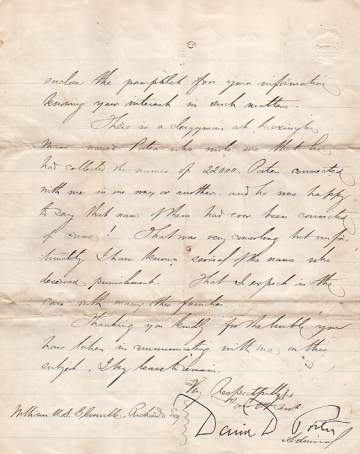 enclose the pamphlet for your information
knowing your interest in such matters.
There is a clergyman at Lexington
named Porter who wrote me that he
had collected the names of 22000 Porters connected
with me in one way or another and he was happy
to say that none of them had ever been convicted
of crime! That was very consoling but unfor-
tunately I have known several of the name who
deserved punishment. That I expect is the
case with many other families.
Thanking you kindly for the trouble you
have taken in communicating with me, on this
subject, I beg leave to remain.
Very Respectfully
Your Obt Servt
David D Porter
Admiral
William A.
Esq